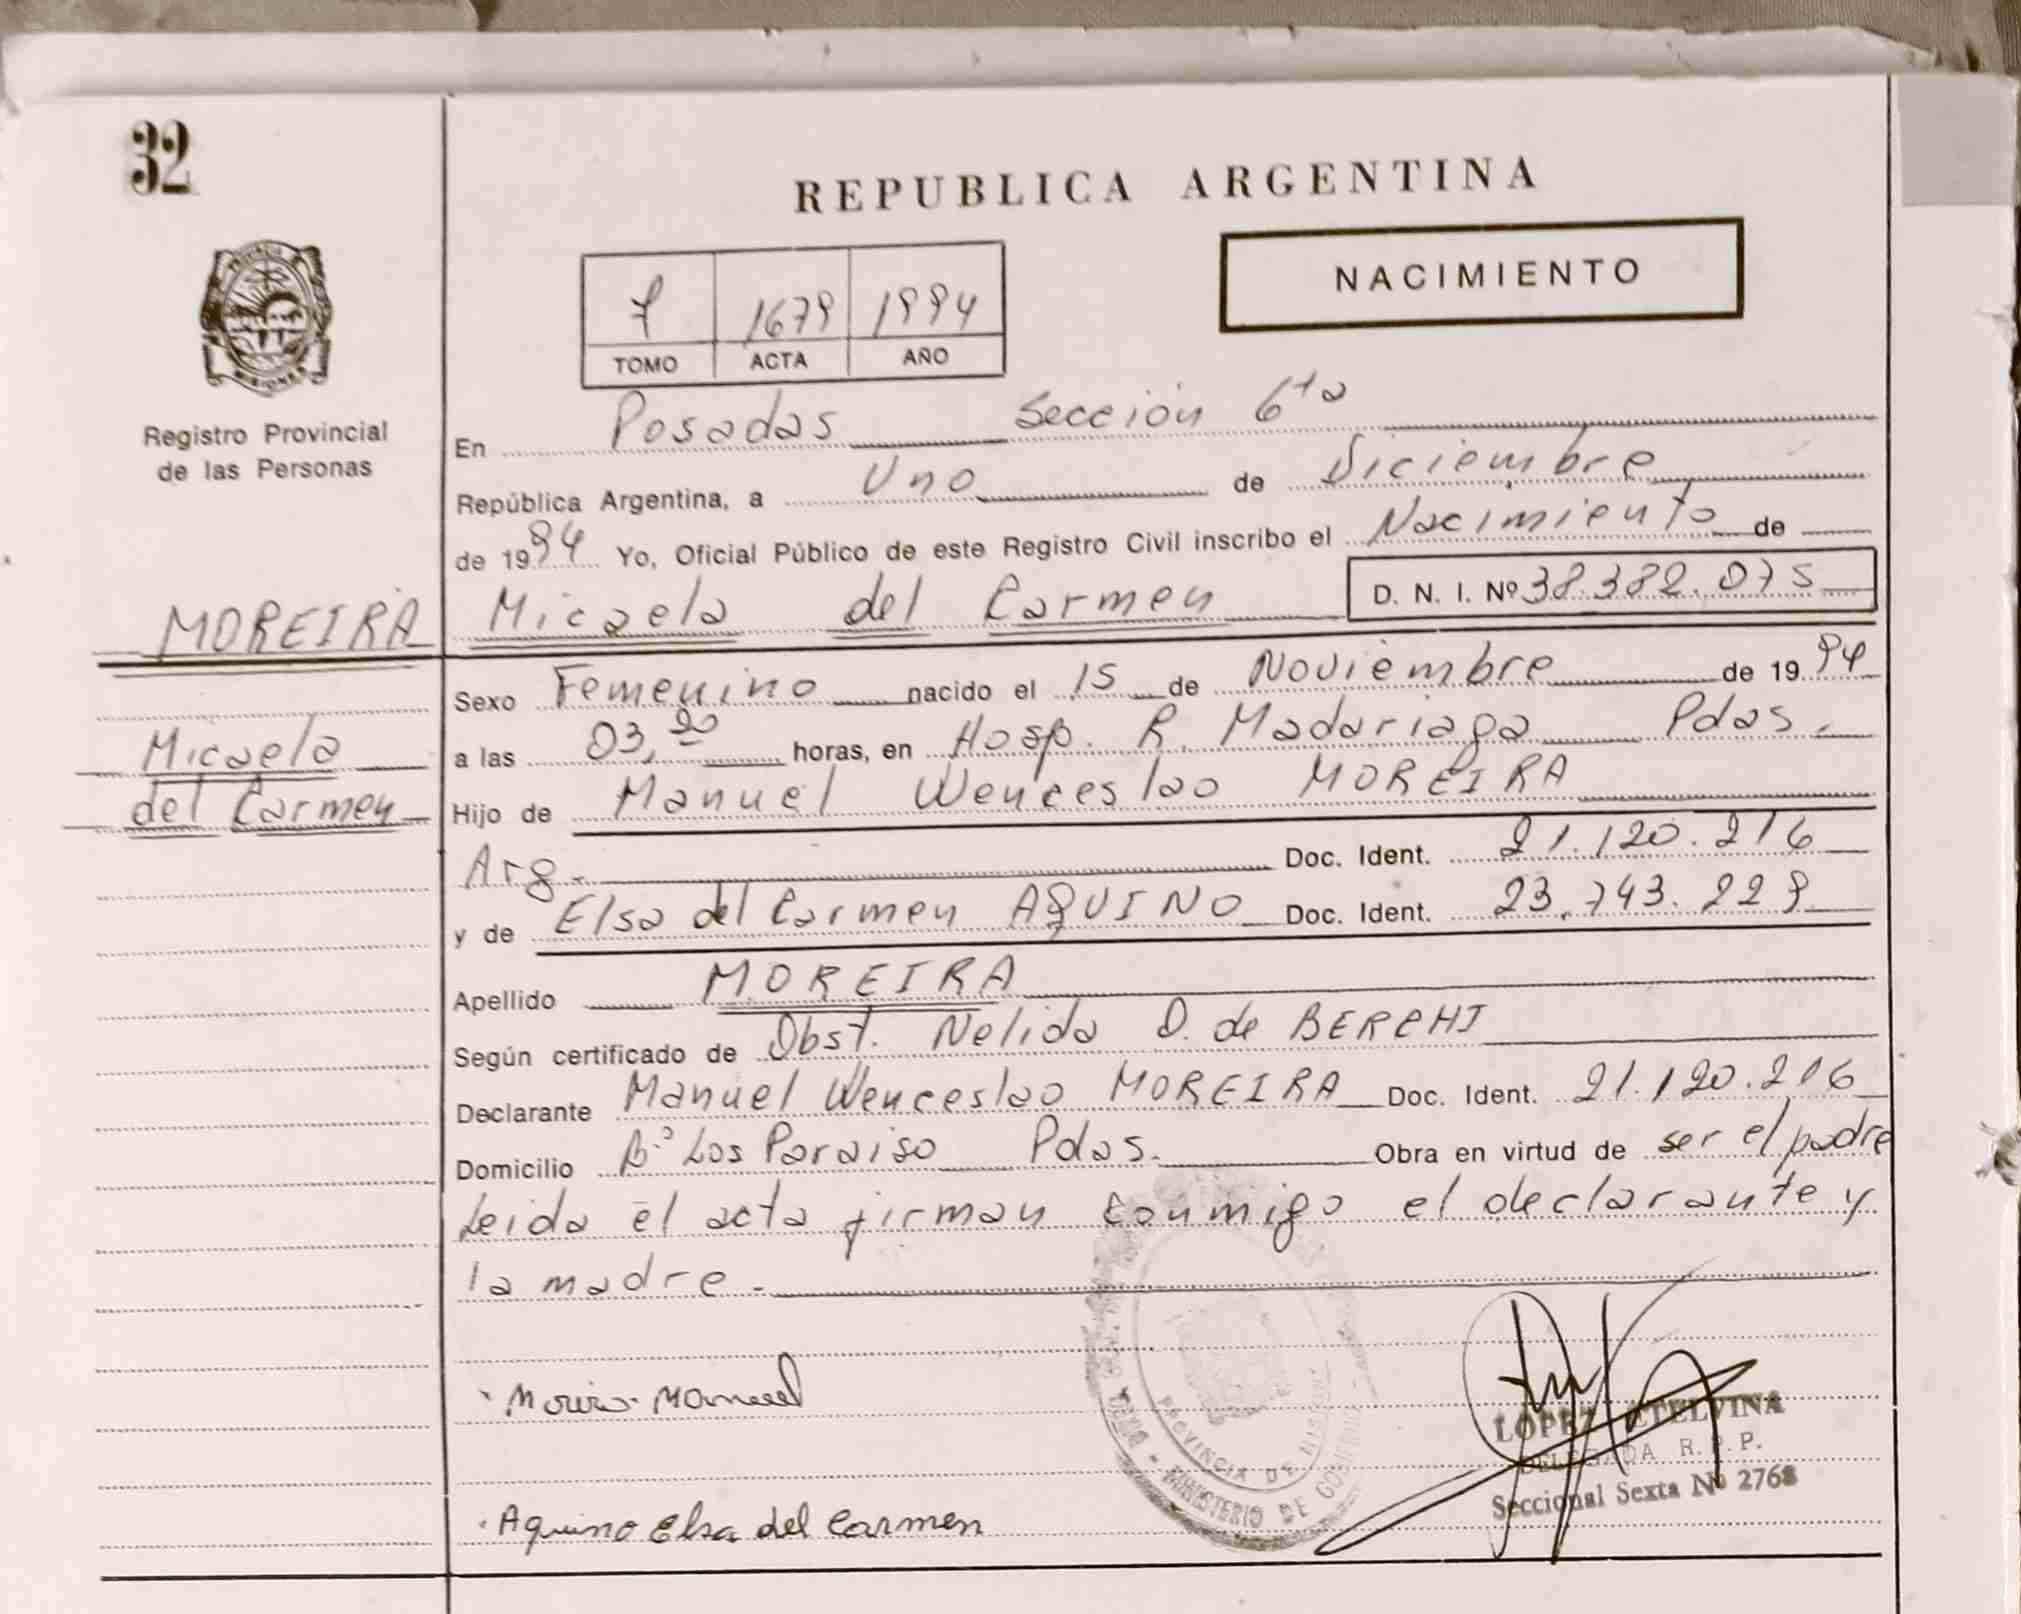 32
REPUBLICA ARGENTINA
NACIMIENTO
7 1679 1994
TOMO ACTA AÑO
Registro Provincial
de las Personas
En Posadas Sección 6ta
República Argentina, a Uno de Diciembre
de 1994 Yo, Oficial Público de este Registro Civil inscribo el Nacimiento de
MOREIRA
Micaela del Carmen D. N. I. Nº 38.382.075
Sexo Femenino nacido el 15 de Noviembre de 1994
Micaela
del Carmen
a las 03,20 horas, en Hosp. R. Madariaga Pdas.
Hijo de Manuel Wenceslao MOREIRA
Arg. Doc. Ident. 21.120.216
y de Elsa del Carmen AQUINO Doc. Ident. 23.743.229
Apellido MOREIRA
Según certificado de Obst. Nelida D. de BERCHI
Declarante Manuel Wenceslao MOREIRA Doc. Ident. 21.120.216
Domicilio Bº Los Paraiso Pdas. Obra en virtud de ser el padre
Leida el acta firman conmigo el declarante y
la madre.
Manuel
LOPEZ ETELVINA
DELEGADA R. P. P.
Seccional Sexta Nº 2768
Aquino Elsa del Carmen
PROVINCIA DE MISIONES
MINISTERIO DE GOBIERNO